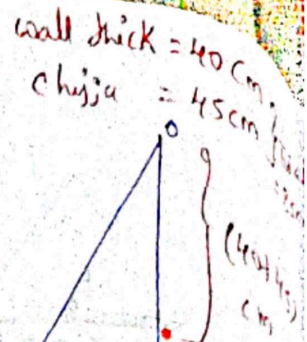 wall thick = 40 cm
chijja = 45 cm
O
(40+45)
cm